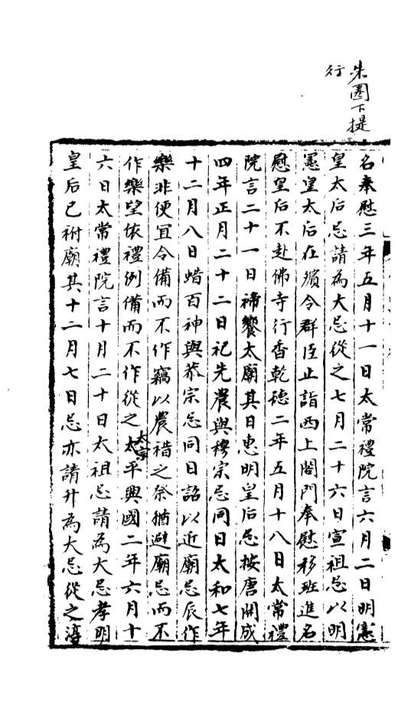 朱圏下提
行
名奉慰三年五月十一日太常禮院言六月二日明憲
皇太后忌請為大忌從之七月二十六日宣祖忌以明
憲皇太后在殯令群臣止詣西上閤門奉慰移班進名
慰皇后不赴佛寺行香乾德二年五月十八日太常禮
院言二十一日禘饗太廟其日惠明皇后忌按唐開成
四年正月二十二日祀先農與穆宗忌同日太和七年
十二月八日蜡百神與敬宗忌同日詔以近廟忌辰作
樂非便宜令備而不作竊以農禧之祭猶避廟忌而不
作樂望依禮例備而不作從之太宗太平興國二年六月十
六日太常禮院言十月二十日太祖忌請為大忌孝明
皇后已祔廟其十二月七日忌亦請升為大忌從之淳